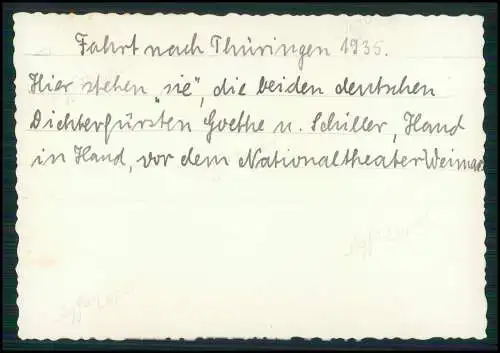 Fahrt nach Thüringen 1935.
Hier stehen „sie", die beiden deutschen
Dichterfürsten Goethe u. Schiller, Hand
in Hand, vor dem Nationaltheater Weimar